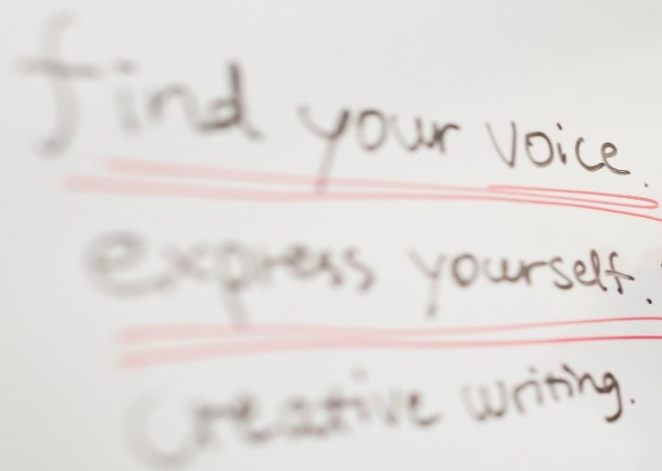 find your voice.
express yourself.
creative writing.